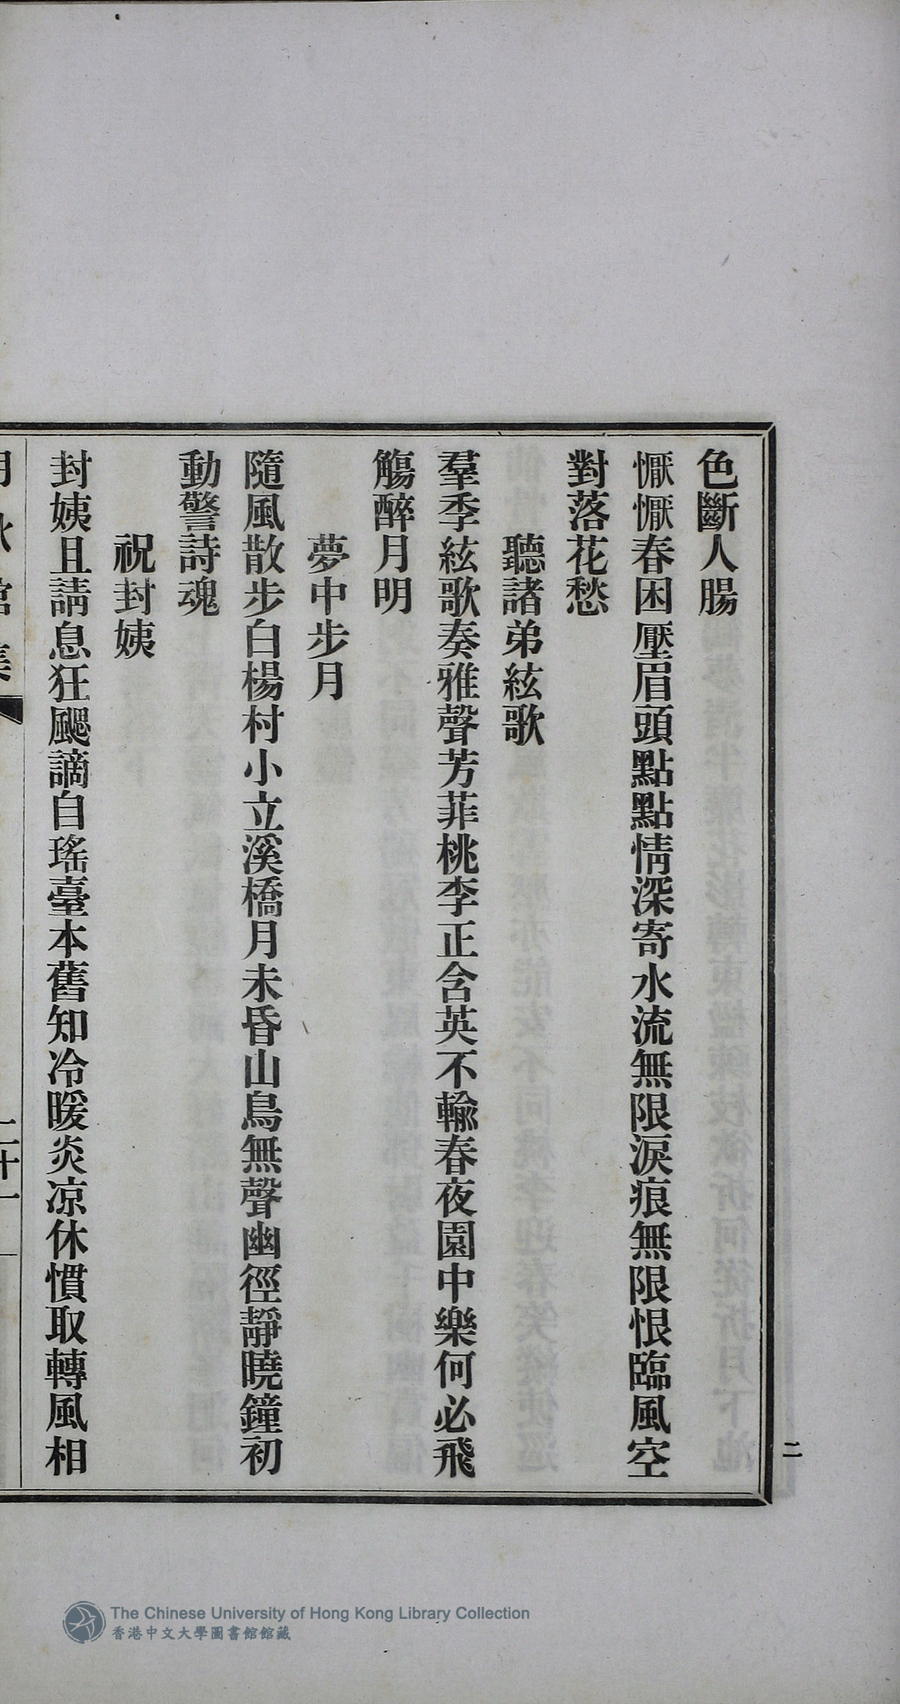 色斷人腸
懨懨春困壓眉頭點點情深寄水流無限淚痕無限恨臨風空
對落花愁
聽諸弟絃歌
羣季絃歌奏雅聲芳菲桃李正含英不輸春夜園中樂何必飛
觴醉月明
夢中步月
隨風散步白楊村小立溪橋月未昏山鳥無聲幽徑靜曉鐘初
動警詩魂
祝封姨
封姨且請息狂颸謫自瑤臺本舊知冷暖炎凉休慣取轉風相
二十一
二
The Chinese University of Hong Kong Library Collection
香港中文大學圖書館館藏